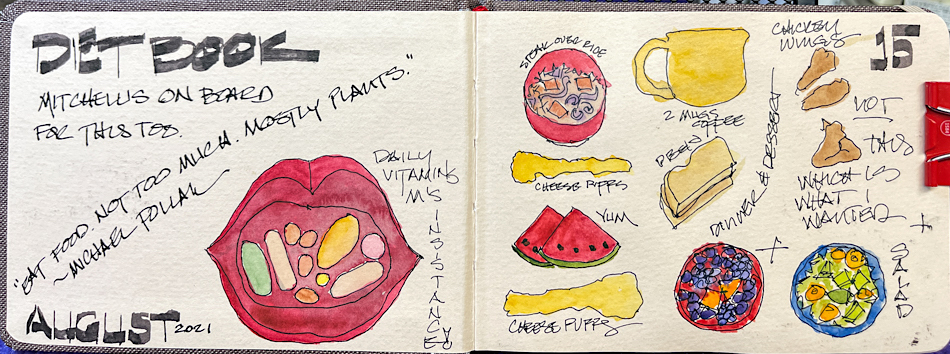 DIET BOOK
MITCHELL IS ON BOARD
FOR THIS TOO.
"EAT FOOD. NOT TOO MUCH. MOSTLY PLANTS."
~ MICHAEL POLLAN
DAILY
VITAMINS
M'S
INSISTANCE
AUGUST 2021
STEAK OVER RICE
2 MUGS
COFFEE
CHICKEN
WINGS
15
CHEESE PUFFS
YUM
CHEESE PUFFS
DINNER & DESSERT
NOT
THIS
WHICH IS
WHAT I
WANTED
+
+
SALAD